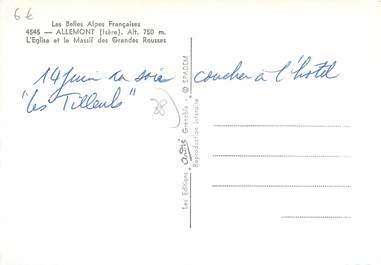 6€
Les Belles Alpes Françaises
4545 - ALLEMONT (Isère). Alt. 750 m.
L'Eglise et le Massif des Grandes Rousses
14 juin au soir coucher à l'hôtel
"les Tilleuls"
38
Les Editions André Grenoble - © SPADEM
Reproduction interdite